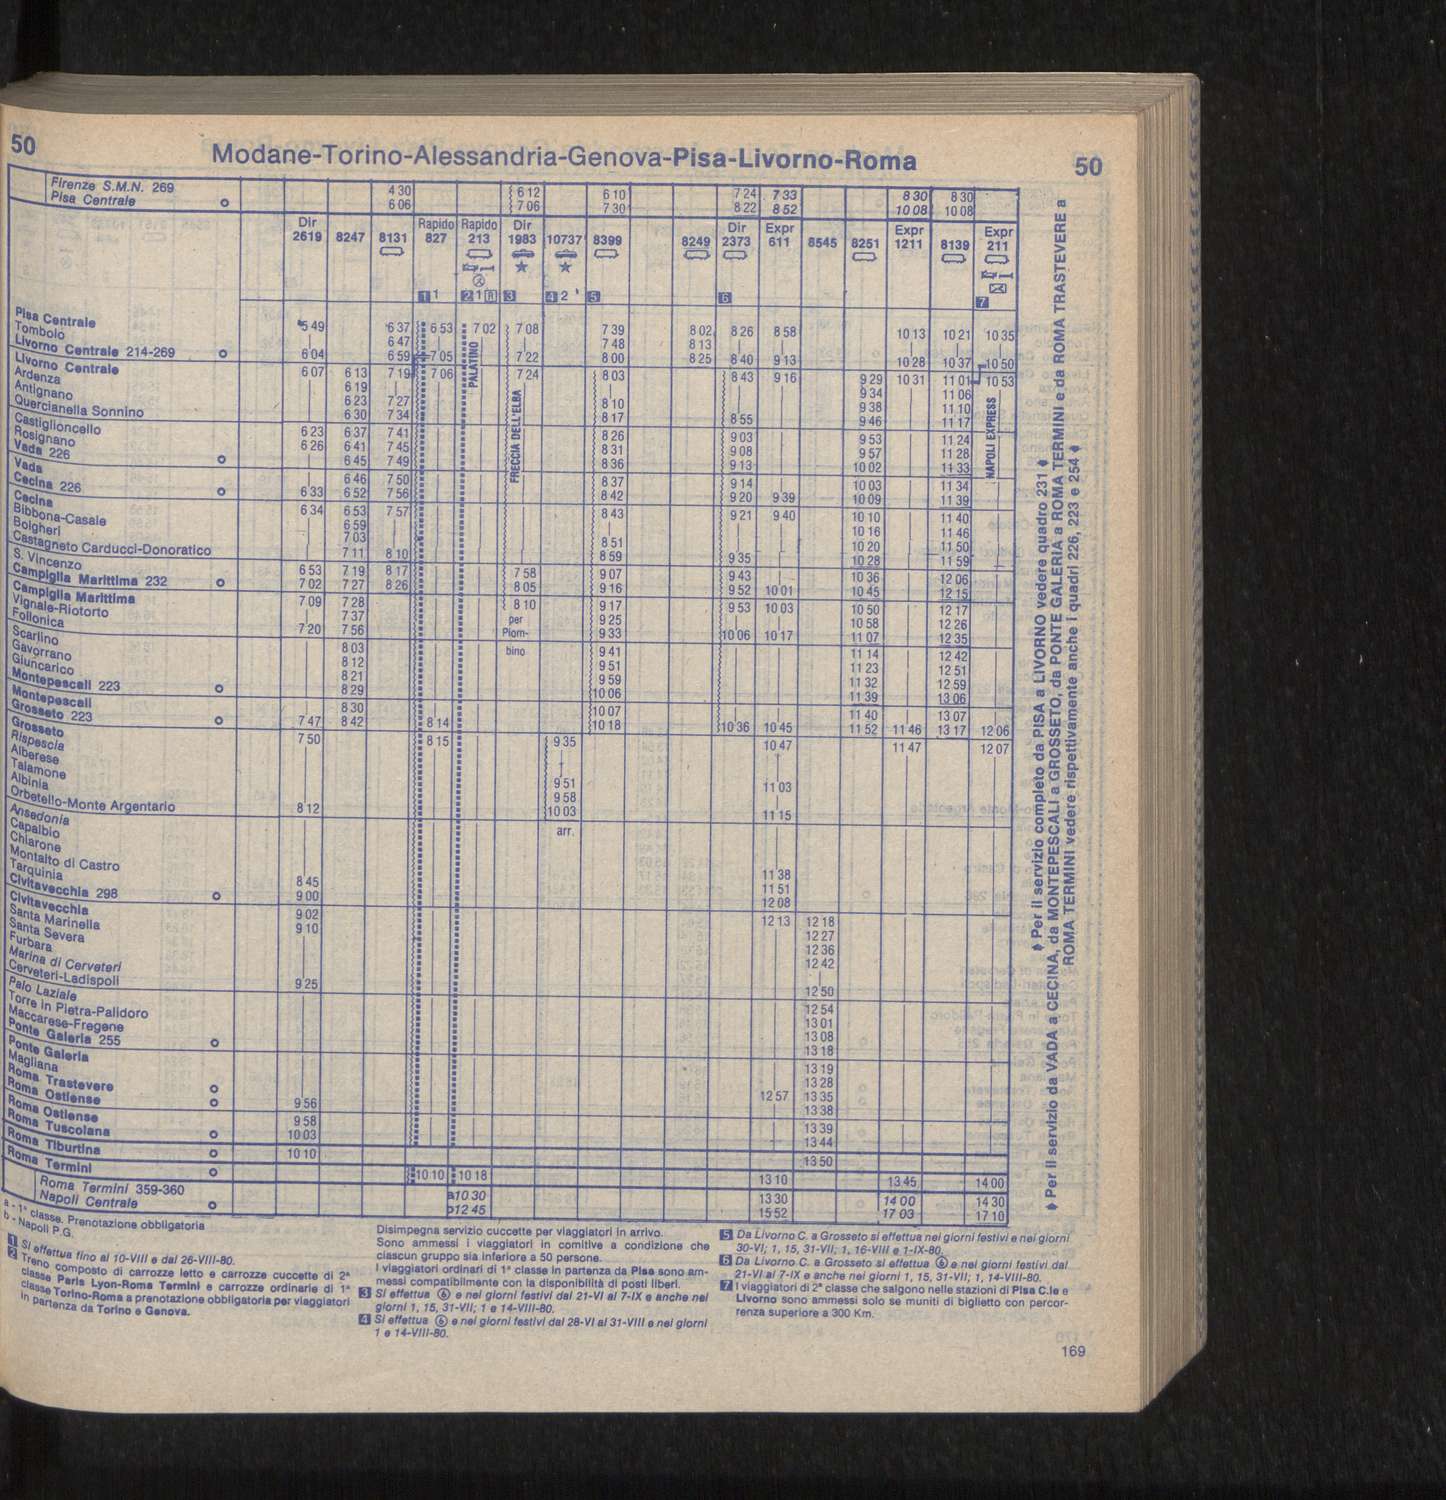 50
Modane-Torino-Alessandria-Genova-Pisa-Livorno-Roma
50
Firenze S.M.N. 269 4 30 6 12 6 10 7 24 7 33 8 30 8 30
Pisa Centrale 6 06 7 06 7 30 8 22 8 52 10 08 10 08
Dir 2619
8247
8131
Rapido 827
Rapido 213
Dir 1983
10737
8399
8249
Dir 2373
Expr 611
8545
8251
Expr 1211
8139
Expr 211
1 1 2 1 R 3 4 2 5 6 7
Pisa Centrale 5 49 6 37 6 53 7 02 7 08 7 39 8 02 8 26 8 58 10 13 10 21 10 35
Tombolo 6 47 7 48 8 13
Livorno Centrale 214-269 6 04 6 59 7 05 7 22 8 00 8 25 8 40 9 13 10 28 10 37 10 50
Livorno Centrale 6 07 6 13 7 19 7 06 7 24 8 03 8 43 9 16 9 29 10 31 11 01 10 53
Ardenza 6 19 9 34 11 06
Antignano 6 23 7 27 8 10 9 38 11 10
Quercianella Sonnino 6 30 7 34 8 17 8 55 9 46 11 17
Castiglioncello 6 23 6 37 7 41 8 26 9 03 9 53 11 24
Rosignano 6 26 6 41 7 45 8 31 9 08 9 57 11 28
Vada 226 6 45 7 49 8 36 9 13 10 02 11 33
Vada 6 46 7 50 8 37 9 14 10 03 11 34
Cecina 226 6 33 6 52 7 56 8 42 9 20 9 39 10 09 11 39
Cecina 6 34 6 53 7 57 8 43 9 21 9 40 10 10 11 40
Bibbona-Casale 6 59 10 16 11 46
Bolgheri 7 03 8 51 10 20 11 50
Castagneto Carducci-Donoratico 7 11 8 10 8 59 9 35 10 28 11 59
S. Vincenzo 6 53 7 19 8 17 7 58 9 07 9 43 10 36 12 06
Campiglia Marittima 232 7 02 7 27 8 26 8 05 9 16 9 52 10 01 10 45 12 15
Campiglia Marittima 7 09 7 28 8 10 9 17 9 53 10 03 10 50 12 17
Vignale-Riotorto 7 37 per 9 25 10 58 12 26
Follonica 7 20 7 56 Piom- 9 33 10 06 10 17 11 07 12 35
Scarlino 8 03 bino 9 41 11 14 12 42
Gavorrano 8 12 9 51 11 23 12 51
Giuncarico 8 21 9 59 11 32 12 59
Montepescali 223 8 29 10 06 11 39 13 06
Montepescali 8 30 10 07 11 40 13 07
Grosseto 223 7 47 8 42 8 14 10 18 10 36 10 45 11 52 11 46 13 17 12 06
Grosseto 7 50 8 15 9 35 10 47 11 47 12 07
Rispescia
Alberese
Talamone 9 51 11 03
Albinia 9 58
Orbetello-Monte Argentario 8 12 10 03 11 15
Ansedonia arr.
Capalbio
Chiarone
Montalto di Castro 11 38
Tarquinia 8 45 11 51
Civitavecchia 298 9 00 12 08
Civitavecchia 9 02 12 13 12 18
Santa Marinella 9 10 12 27
Santa Severa 12 36
Furbara 12 42
Marina di Cerveteri
Cerveteri-Ladispoli 9 25 12 50
Palo Laziale 12 54
Torre in Pietra-Palidoro 13 01
Maccarese-Fregene 13 08
Ponte Galeria 255 13 18
Ponte Galeria 13 19
Magliana 13 28
Roma Trastevere 12 57 13 35
Roma Ostiense 9 56 13 38
Roma Ostiense 9 58 13 39
Roma Tuscolana 10 03 13 44
Roma Tiburtina 10 10 13 50
Roma Termini 10 10 10 18 13 10 13 45 14 00
Roma Termini 359-360 a10 30 13 30 14 00 14 30
Napoli Centrale b12 45 15 52 17 03 17 10
PALATINO
FRECCIA DELL'ELBA
NAPOLI EXPRESS
♦ Per il servizio completo da PISA a LIVORNO vedere quadro 231 ♦
♦ Per il servizio da VADA a CECINA, da MONTEPESCALI a GROSSETO, da PONTE GALERIA a ROMA TERMINI e da ROMA TRASTEVERE a
ROMA TERMINI vedere rispettivamente anche i quadri 226, 223 e 254 ♦
a - 1ª classe. Prenotazione obbligatoria
b - Napoli P.G.
1 Si effettua fino al 10-VIII e dal 26-VIII-80.
2 Treno composto di carrozze letto e carrozze cuccette di 2ª
classe Paris Lyon-Roma Termini e carrozze ordinarie di 1ª
classe Torino-Roma a prenotazione obbligatoria per viaggiatori
in partenza da Torino e Genova.
Disimpegna servizio cuccette per viaggiatori in arrivo.
Sono ammessi i viaggiatori in comitive a condizione che
ciascun gruppo sia inferiore a 50 persone.
I viaggiatori ordinari di 1ª classe in partenza da Pisa sono am-
messi compatibilmente con la disponibilità di posti liberi.
3 Si effettua ⑥ e nei giorni festivi dal 21-VI al 7-IX e anche nei
giorni 1, 15, 31-VII; 1 e 14-VIII-80.
4 Si effettua ⑥ e nei giorni festivi dal 28-VI al 31-VIII e nei giorni
1 e 14-VIII-80.
5 Da Livorno C. a Grosseto si effettua nei giorni festivi e nei giorni
30-VI; 1, 15, 31-VII; 1, 16-VIII e 1-IX-80.
6 Da Livorno C. a Grosseto si effettua ⑥ e nei giorni festivi dal
21-VI al 7-IX e anche nei giorni 1, 15, 31-VII; 1, 14-VIII-80.
7 I viaggiatori di 2ª classe che salgono nelle stazioni di Pisa C.le e
Livorno sono ammessi solo se muniti di biglietto con percor-
renza superiore a 300 Km.
169